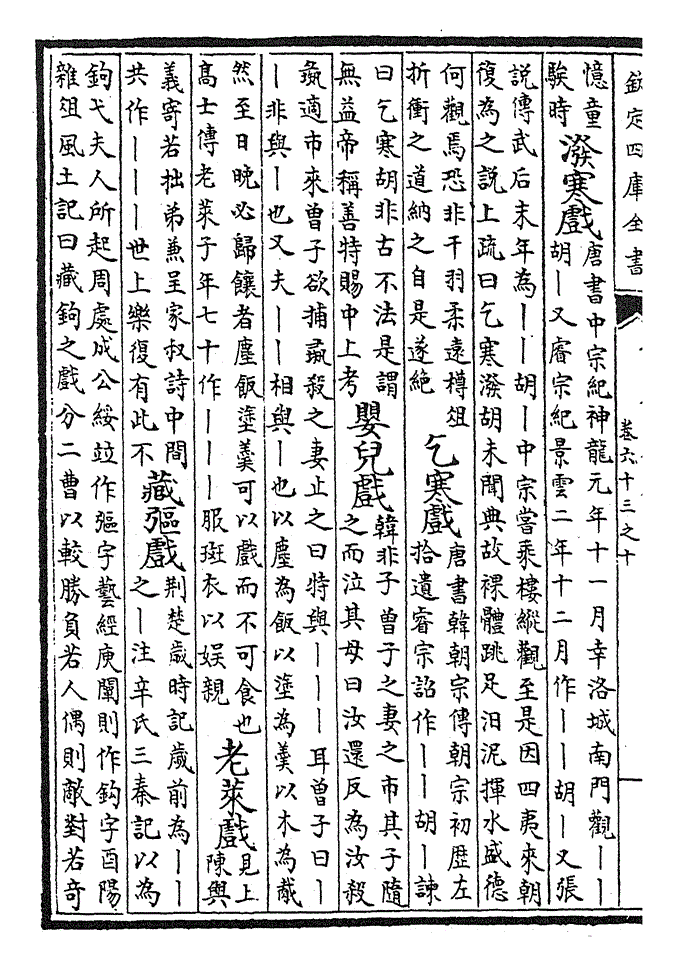 欽定四庫全書
卷六十三之十
憶童
騃時
潑寒戲
唐書中宗紀神龍元年十一月幸洛城南門觀｜｜
胡｜又睿宗紀景雲二年十二月作｜｜胡｜又張
說傳武后末年為｜｜胡｜中宗嘗乘樓縱觀至是因四夷來朝
復為之說上疏曰乞寒潑胡未聞典故裸體跳足汨泥揮水盛德
何觀焉恐非干羽柔遠樽俎
折衝之道納之自是遂絕
乞寒戲
唐書韓朝宗傳朝宗初歴左
拾遺睿宗詔作｜｜胡｜諫
曰乞寒胡非古不法是謂
無益帝稱善特賜中上考
嬰兒戲
韓非子曾子之妻之市其子隨
之而泣其母曰汝還反為汝殺
彘適市來曾子欲捕彘殺之妻止之曰特與｜｜｜耳曾子曰｜
｜非與｜也又夫｜｜相與｜也以塵為飯以塗為羹以木為胾
然至日晚必歸饟者塵飯塗羹可以戲而不可食也
老萊戲
見上
高士傳老萊子年七十作｜｜｜服斑衣以娯親
陳與
義寄若拙弟兼呈家叔詩中間
共作｜｜｜世上樂復有此不
藏彄戲
荆楚歲時記歲前為｜｜
之｜注辛氏三秦記以為
鉤弋夫人所起周處成公綏竝作彄字藝經庾闡則作鉤字酉陽
雜俎風土記曰藏鉤之戲分二曹以較勝負若人偶則敵對若奇